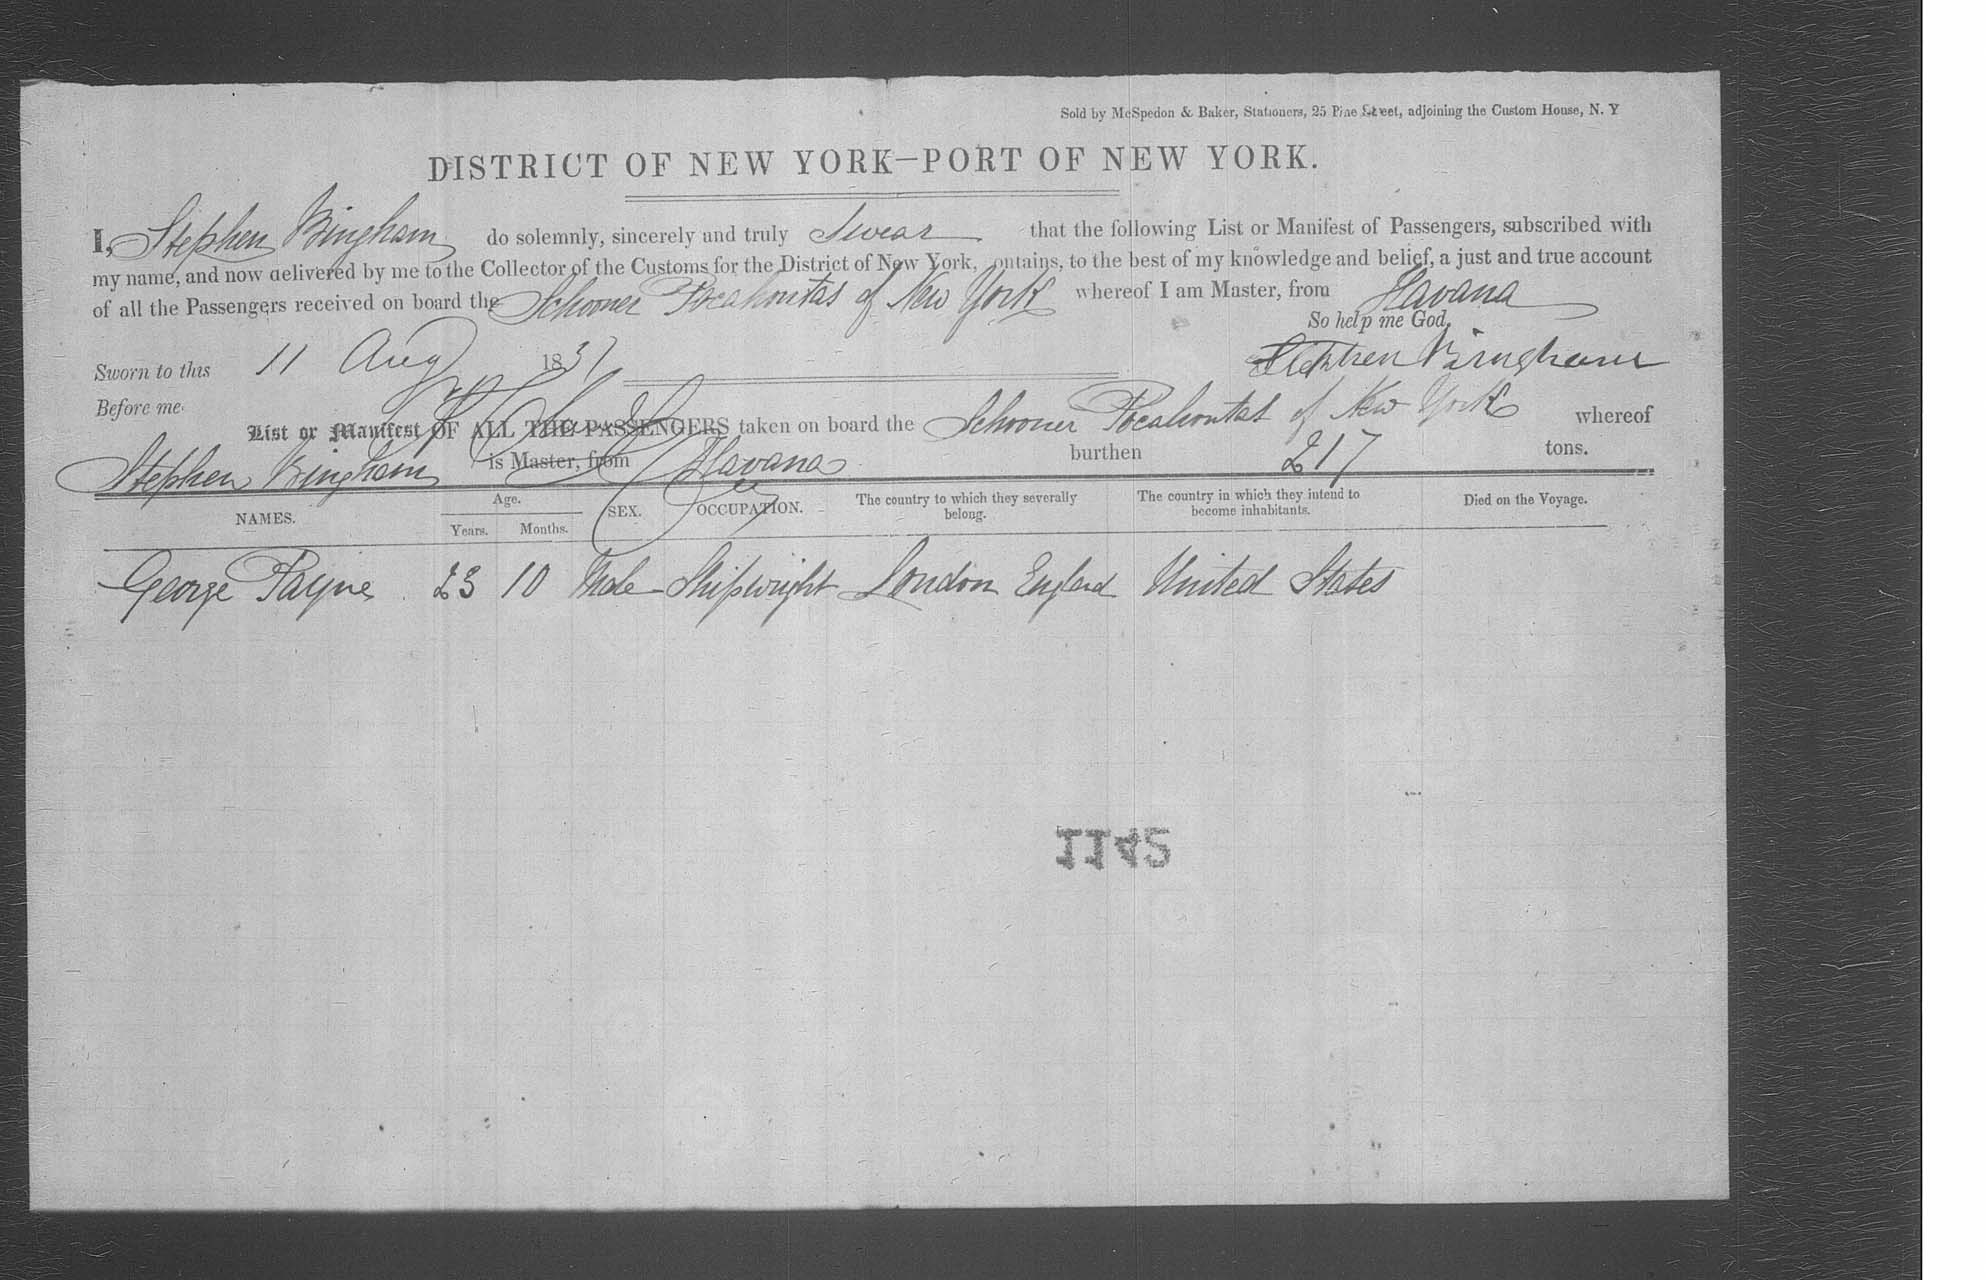 Sold by McSpedon & Baker, Stationers, 25 Pine Street, adjoining the Custom House, N. Y
DISTRICT OF NEW YORK—PORT OF NEW YORK.
I, Stephen Bingham do solemnly, sincerely and truly Swear that the following List or Manifest of Passengers, subscribed with
my name, and now delivered by me to the Collector of the Customs for the District of New York, ontains, to the best of my knowledge and belief, a just and true account
of all the Passengers received on board the Schooner Pocahontas of New York whereof I am Master, from Havana
So help me God.
Sworn to this 11 Aug 1837 Stephen Bingham
Before me
List or Manifest OF ALL THE PASSENGERS taken on board the Schooner Pocahontas of New York whereof
Stephen Bingham is Master, from Havana burthen 217 tons.
NAMES. Age. Years. Months. SEX. OCCUPATION. The country to which they severally belong. The country in which they intend to become inhabitants. Died on the Voyage.
George Payne 23 10 Male Shipwright London England United States
1145